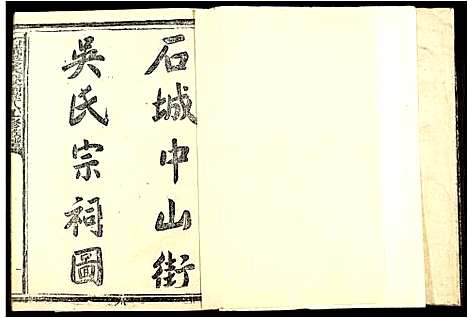 石城中山街
吳氏宗祠圖